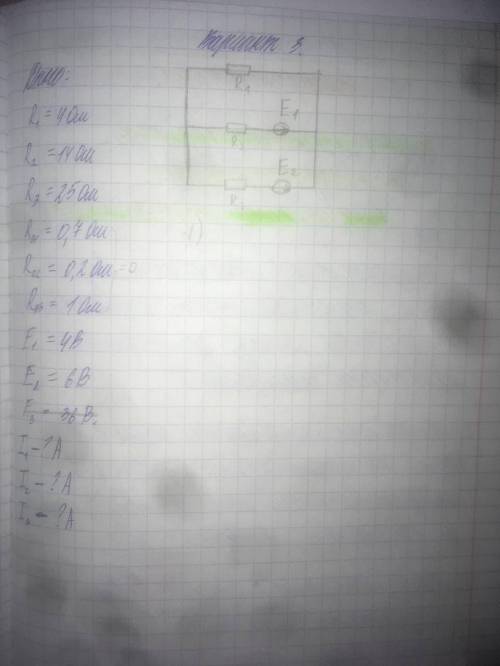 Вариант 3.
Дано:
R₁ = 4 Ом
R₂ = 14 Ом
R₃ = 25 Ом
R₀₁ = 0,7 Ом
R₀₂ = 0,2 Ом = 0
R₀₃ = 1 Ом
E₁ = 4В
E₂ = 6В
E₃ = 36 В.
I₁ - ? А
I₂ - ? А
I₃ - ? А
R₁
E₁
E₂
1)